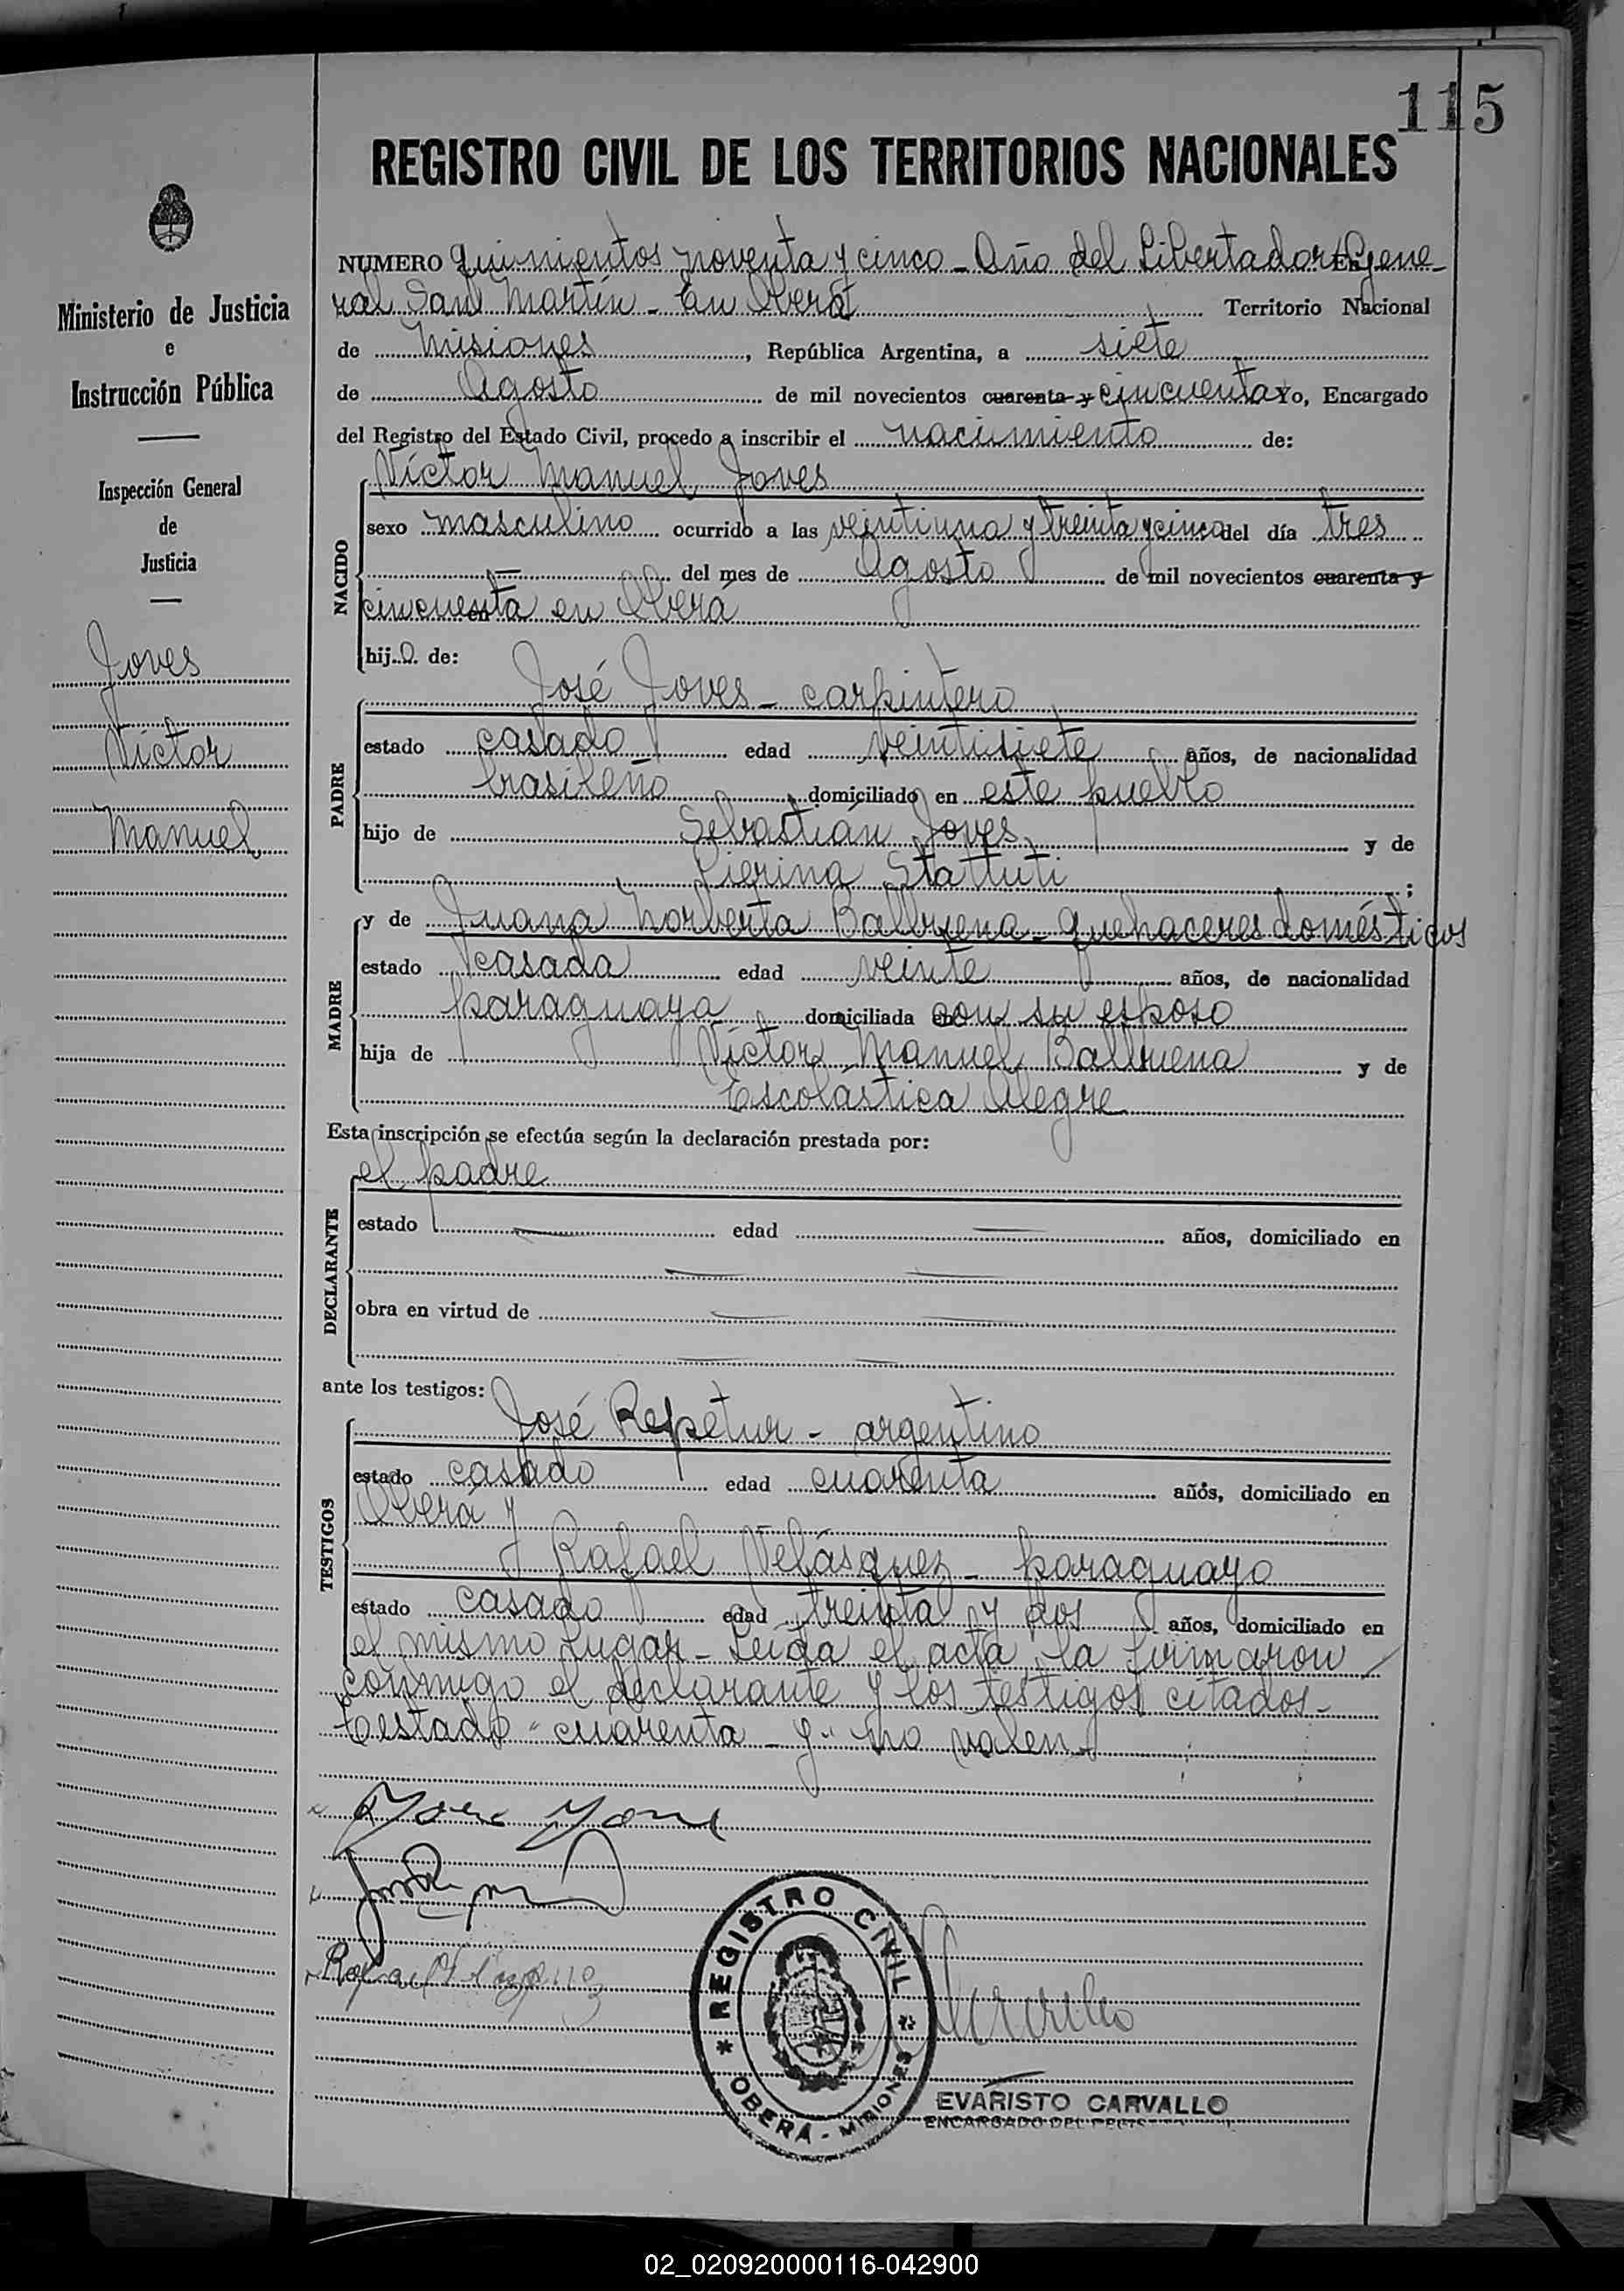 115
REGISTRO CIVIL DE LOS TERRITORIOS NACIONALES
Ministerio de Justicia
e
Instrucción Pública
Inspección General
de
Justicia
Joves
Víctor
Manuel
NUMERO quinientos noventa y cinco - Año del Libertador Gene-
ral San Martín - En Oberá Territorio Nacional
de Misiones, República Argentina, a siete
de Agosto de mil novecientos cuarenta y cincuenta Yo, Encargado
del Registro del Estado Civil, procedo a inscribir el nacimiento de:
Víctor Manuel Joves
NACIDO
sexo masculino ocurrido a las veintiuna y treinta y cinco del día tres
— del mes de Agosto de mil novecientos cuarenta y
cincuenta en Oberá
hijo de:
José Joves - carpintero
PADRE
estado casado edad veintisiete años, de nacionalidad
brasileño domiciliado en este pueblo
hijo de Sebastián Joves y de
Pierina Stattuti;
MADRE
y de Juana Norberta Balbuena - quehaceres domésticos
estado casada edad veinte años, de nacionalidad
paraguaya domiciliada con su esposo
hija de Víctor Manuel Balbuena y de
Escolástica Alegre
Esta inscripción se efectúa según la declaración prestada por:
el padre
DECLARANTE
estado — edad — años, domiciliado en
obra en virtud de
ante los testigos:
José Repetur - argentino
TESTIGOS
estado casado edad cuarenta años, domiciliado en
Oberá y
Rafael Velásquez - paraguayo
estado casado edad treinta y dos años, domiciliado en
el mismo lugar - Leída el acta, la firmaron
conmigo el declarante y los testigos citados -
Testado "cuarenta - y" no valen -
REGISTRO CIVIL
OBERÁ - MISIONES
EVARISTO CARVALLO
ENCARGADO DEL REGIST
02_020920000116-042900